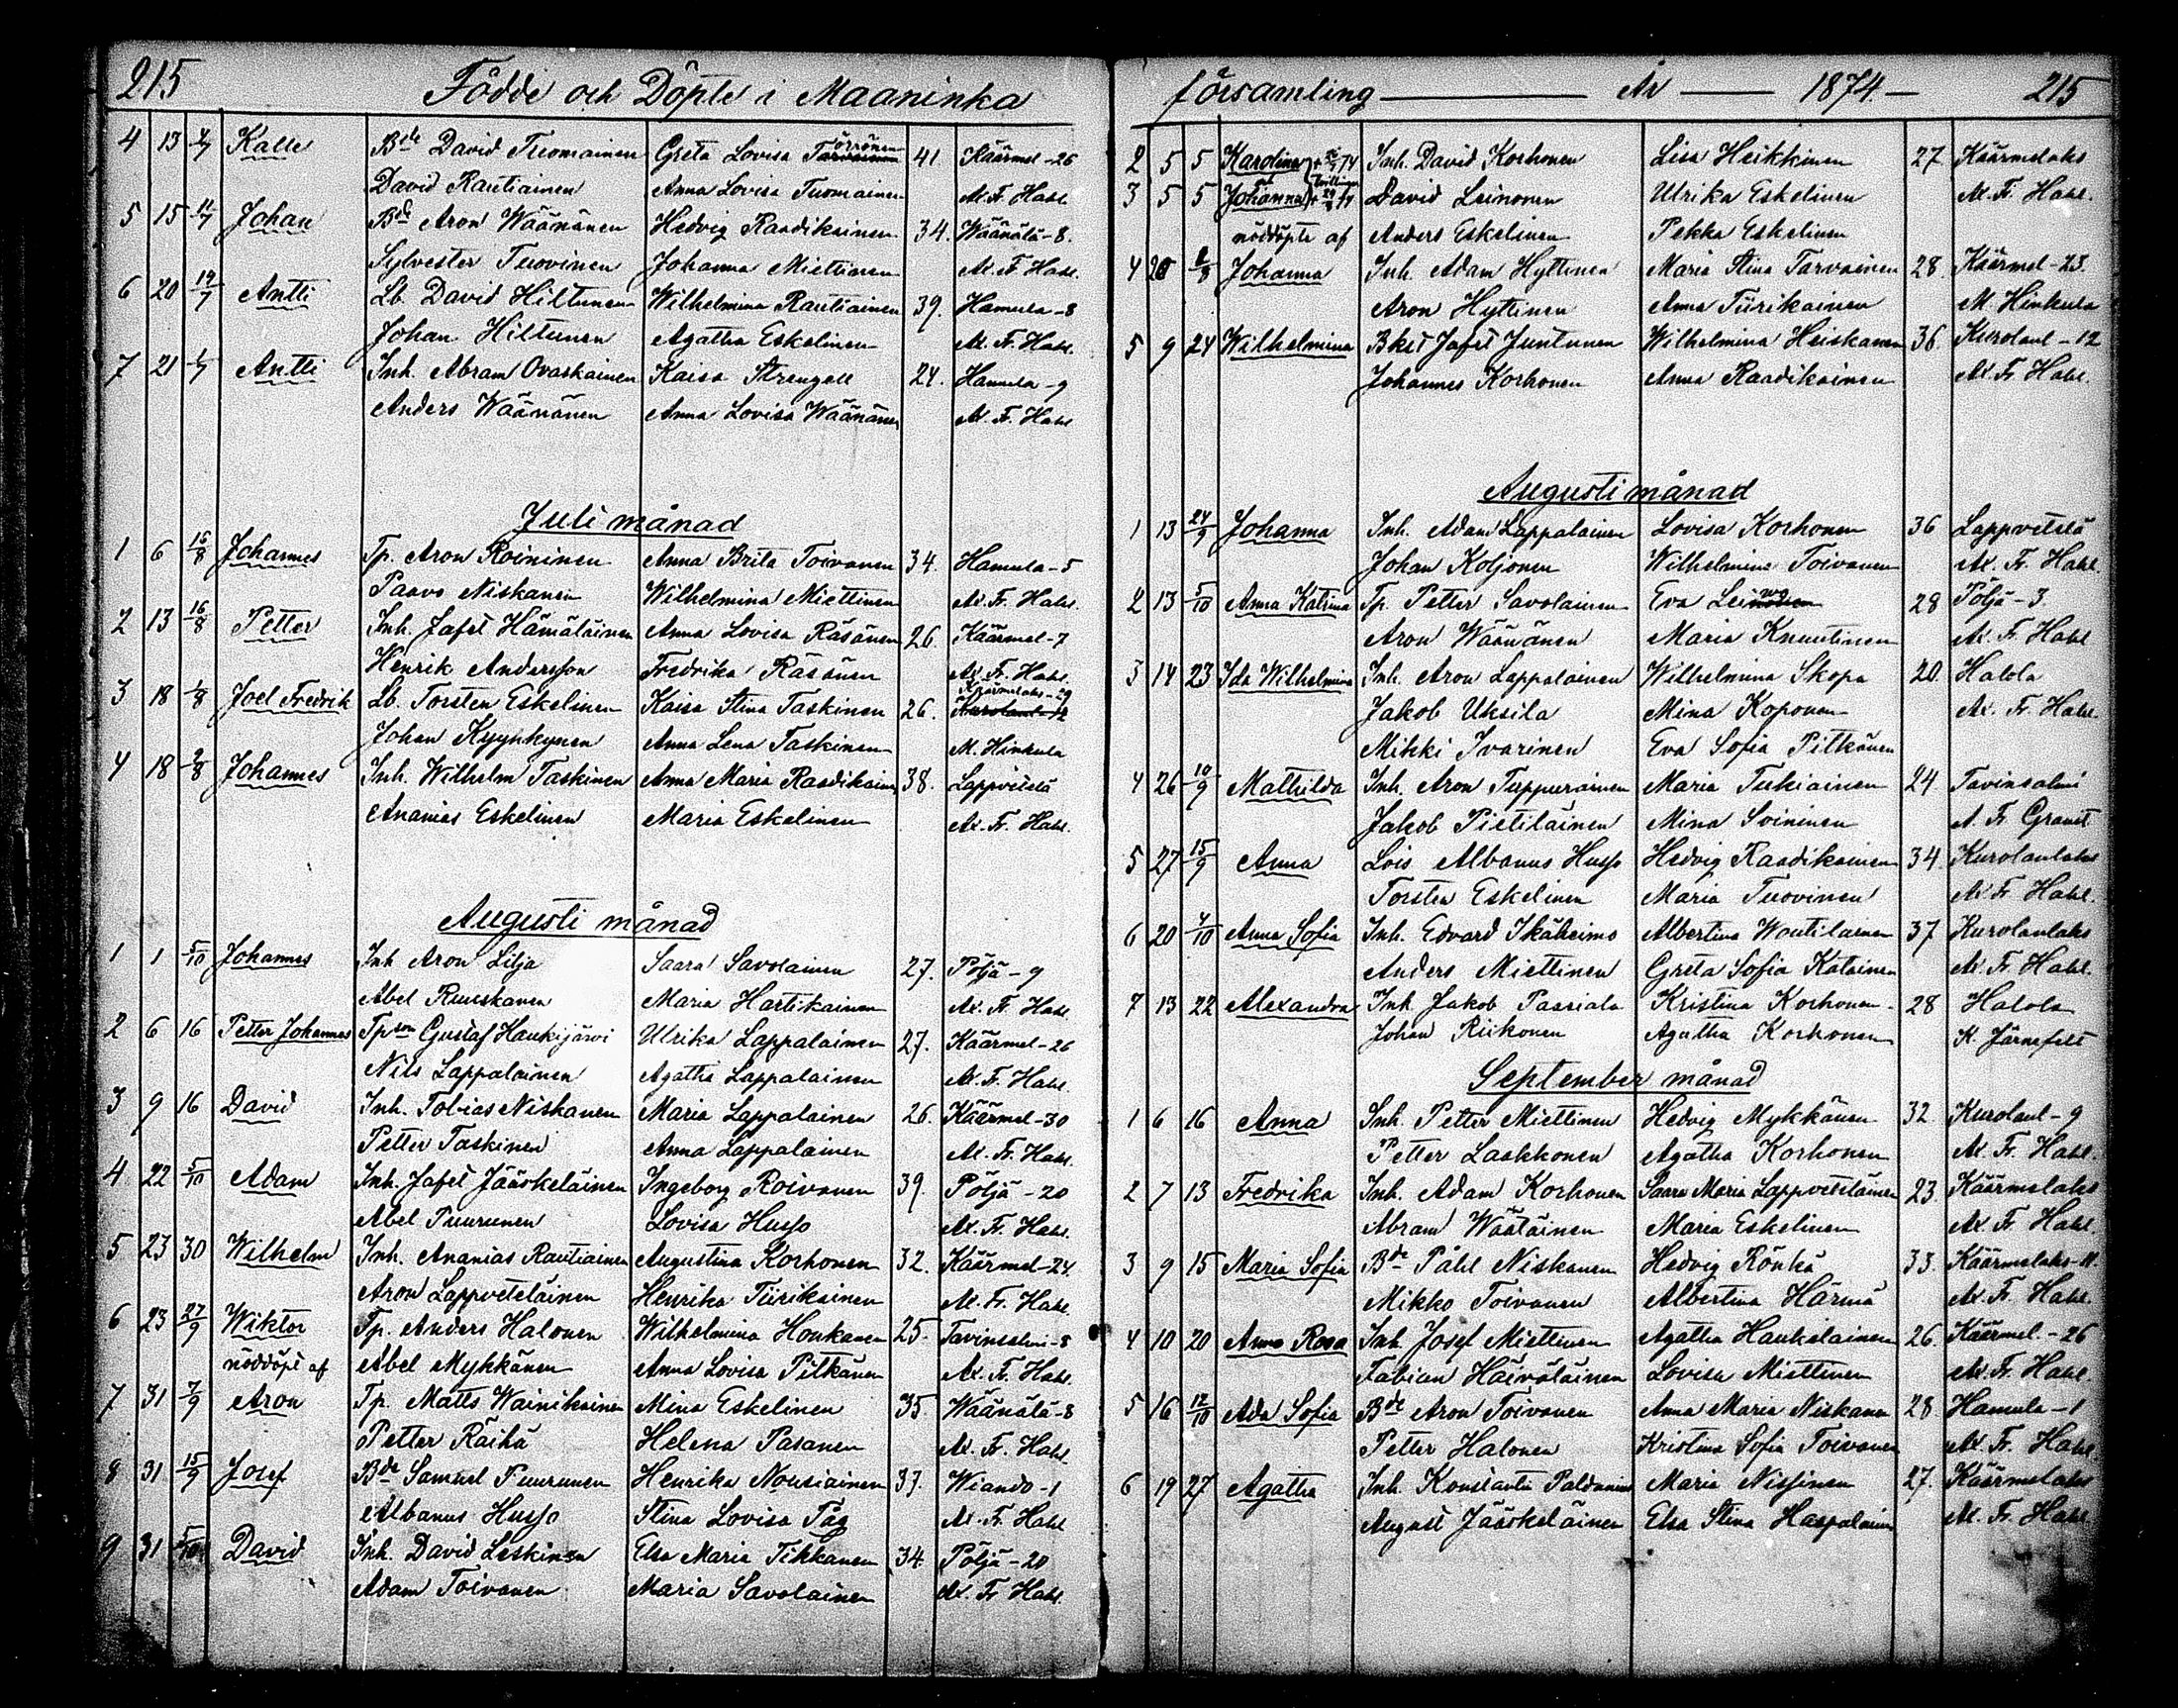 215 Födde och Döpte i Maaninka
4 13 4/7 Kalle Bde David Tuomainen Greta Lovisa Törrönen 41. Käärmel-26
David Rautiainen Anna Lovisa Tuomainen Al. Fr. Hahl
5 15 12/7 Johan Bde Aron Wäänänen Hedvig Raadikainen 34. Wäänälä-8.
Sylvester Tuovinen Johanna Miettinen Al. Fr. Hahl.
6 20 19/7 Antti Lb. David Hiltunen Wilhelmina Rautiainen 39. Hamula-8
Johan Hiltunen Agatha Eskelinen Al. Fr. Hahl.
7 21 Antti Inh. Abram Ovaskainen Kaisa Strengell 24. Hamula-9
Anders Wäänänen Anna Lovisa Wäänänen Al. Fr. Hahl
Juli månad
1 6 15/8 Johannes Tp. Aron Roininen Anna Brita Toivanen 34. Hamula-5
Paavo Niskanen Wilhelmina Miettinen Al. Fr. Hahl.
2 13 16/8 Petter Inh. Jafet Hämäläinen Anna Lovisa Räsänen 26. Käärmel-7
Henrik Andersson Fredrika Räsänen Al. Fr. Hahl.
3 18 1/8 Joel Fredrik Lb. Torsten Eskelinen Kaisa Stina Taskinen 26. Käärmelaks-29
Johan Kyynkynen Anna Lena Taskinen M. Hinkula
4 18 2/8 Johannes Inh. Wilhelm Taskinen Anna Maria Raadikainen 38. Lappvetelä
Ananias Eskelinen Maria Eskelinen Al. Fr. Hahl.
Augusti månad
1 1 5/10 Johannes Inh Aron Lilja Saara Savolainen 27. Pöljä-9
Abel Ruuskanen Maria Hartikainen Al. Fr. Hahl
2 6 16 Petter Johannes Tpson Gustaf Haukijärvi Ulrika Lappalainen 27. Käärmel-26
Nils Lappalainen Agatha Lappalainen Al. Fr. Hahl.
3 9 16 David Inh. Tobias Niskanen Maria Lappalainen 26. Käärmel-30
Petter Taskinen Anna Lappalainen Al. Fr. Hahl.
4 22 5/10 Adam Inh. Jafet Jääskeläinen Ingeborg Roivanen 39. Pöljä-20
Abel Puurunen Lovisa Husso Al. Fr. Hahl.
5 23 30 Wilhelm Inh. Ananias Rautiainen Augustina Korhonen 32. Käärmel-24.
Aron Lappveteläinen Henrika Tiirikainen Al. Fr. Hahl
6 23 27/9 Wiktor Tp. Anders Halonen Wilhelmina Honkanen 25. Tavinsalmi-8
nöddöpt af Abel Mykkänen Anna Lovisa Pitkänen Al. Fr. Hahl.
7 31 7/9 Aron Tp. Matts Wainikainen Mina Eskelinen 35. Wäänälä-8
Petter Räihä Helena Pasanen Al. Fr. Hahl.
8 31 15/9 Josef Bde Samuel Puurunen Henrika Nousiainen 37. Wiando-1
Albanus Husso Stina Lovisa Påg Al. Fr. Hahl
9 31 5/10 David Inh. David Leskinen Elsa Maria Tikkanen 34. Pöljä-20
Adam Toivanen Maria Savolainen Al. Fr. Hahl.
församling År 1874.- 215
2 5 5 Karolina Inh. David Korhonen Lisa Heikkinen 27. Käärmelaks
3 5 5 Johanna Tvillingar David Leinonen Ulrika Eskelinen Al. Fr. Hahl.
nöddöpte af Anders Eskelinen Pekka Eskelinen
4 26 2/8 Johanna Inh. Adam Hyttinen Maria Stina Tarvainen 28. Käärmel-23.
Aron Hyttinen Anna Tiirikainen M. Hinkula
5 9 24 Wilhelmina Bket Jafet Juntunen Wilhelmina Heiskanen 36. Kurolanl-12
Johannes Korhonen Anna Raadikainen Al. Fr. Hahl.
Augusti månad
1 13 24/9 Johanna Inh. Adam Lappalainen Lovisa Korhonen 36 Lappvetelä
Johan Koljonen Wilhelmina Toivanen Al. Fr. Hahl.
2 13 5/10 Anna Katrina Tp. Petter Savolainen Eva 28 Pöljä-3.
Aron Wäänänen Maria Knuutinen Al. Fr. Hahl
3 14 23 Ida Wilhelmina Inh. Aron Lappalainen Wilhelmina Skopa 20. Halola
Jakob Uksila Mina Koponen Al. Fr. Hahl.
Mikki Ivarinen Eva Sofia Pitkänen
4 26 10/9 Mathilda Inh. Aron Tuppurainen Maria Tukiainen 24. Tavinsalmi
Jakob Pietiläinen Mina Soininen A. Fr. Granit
5 27 15/9 Anna Lois Albanus Husso Hedvig Raadikainen 34. Kurolanlaks
Torsten Eskelinen Maria Tuovinen Al. Fr. Hahl.
6 20 4/10 Anna Sofia Inh. Edvard Ikäheimo Albertina Woutilainen 37 Kurolanlaks
Anders Miettinen Greta Sofia Katainen Al. Fr. Hahl.
7 13 22 Alexandra Inh. Jakob Paasiala Kristina Korhonen 28 Halola
Johan Riikonen Agatha Korhonen K. Järnefelt
September månad
1 6 16 Anna Inh. Petter Miettinen Hedvig Mykkänen 32. Kurolanl-9
Petter Laakkonen Agatha Korhonen Al. Fr. Hahl.
2 7 13 Fredrika Inh. Adam Korhonen Saara Maria Lappveteläinen 23. Käärmelaks
Abram Väätäinen Maria Eskelinen Al. Fr. Hahl.
3 9 15 Maria Sofia Bde Påhl Niskanen Hedvig Rönkä 33. Käärmelaks-11.
Mikko Toivanen Albertina Härmä Al. Fr. Hahl.
4 10 20 Anna Rosa Inh. Josef Miettinen Agatha Haukelainen 26. Käärmel.-26
Fabian Häiväläinen Lovisa Miettinen Al. Fr. Hahl.
5 16 12/10 Ada Sofia Bde Aron Toivanen Anna Maria Niskanen 28. Hamula-1
Petter Halonen Kristina Sofia Toivanen Al. Fr. Hahl.
6 19 27 Agatha Inh. Konstantin Paldanius Maria Nissinen 27. Käärmelaks
August Jääskeläinen Elsa Stina Haapalainen Al. Fr. Hahl